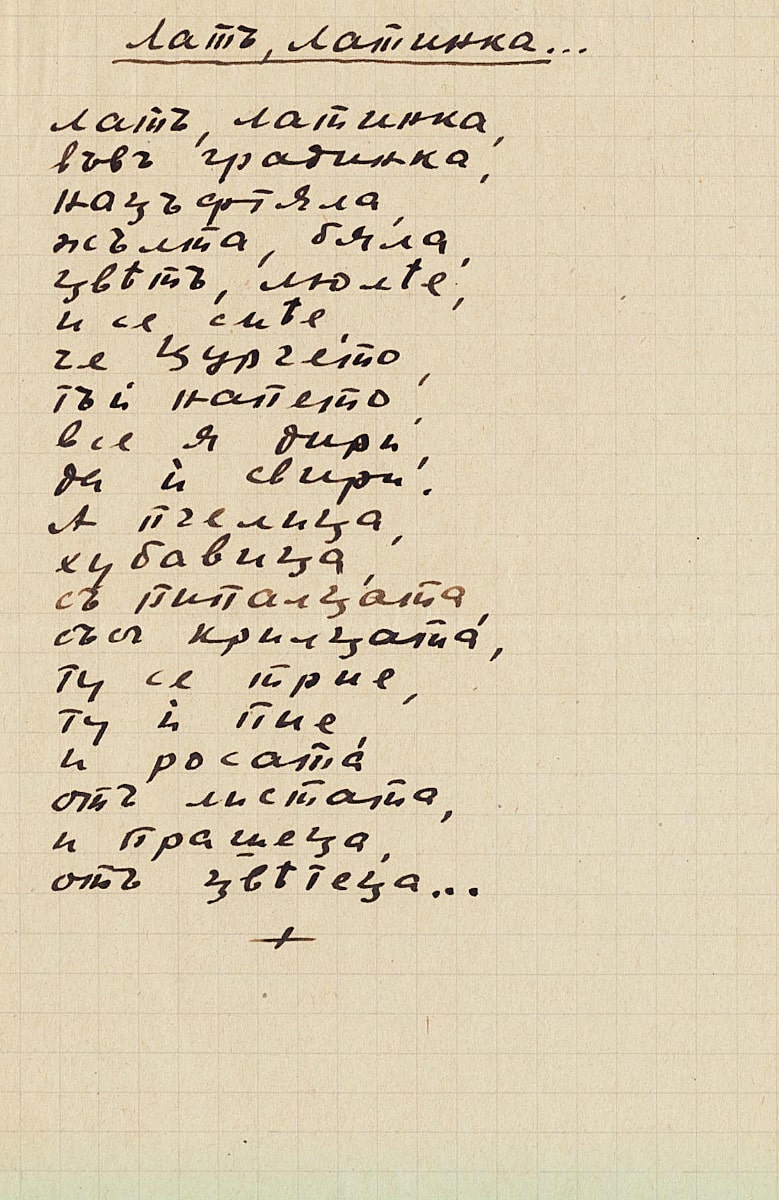 Латъ, латинка...
латъ, латинка,
въвъ градинка,
нацъфтяла,
жълта, бяла,
цвѣтъ, люлѣе,
и се смѣе,
че щурчето,
тъй напето,
все я дири,
да ѝ свири.
А пчелица,
хубавица,
съ пипалцата,
със крилцата,
ту се трие,
ту ѝ пие,
и росата
отъ листата,
и прашеца,
отъ цвѣтеца...